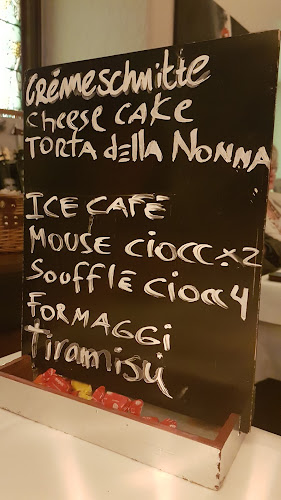 CRÉMESCHNITTE
CHEESE CAKE
TORTA DELLA NONNA
ICE CAFÉ
MOUSE CIOCC x2
SOUFFLÉ CIOCC 4
FORMAGGI
Tiramisú